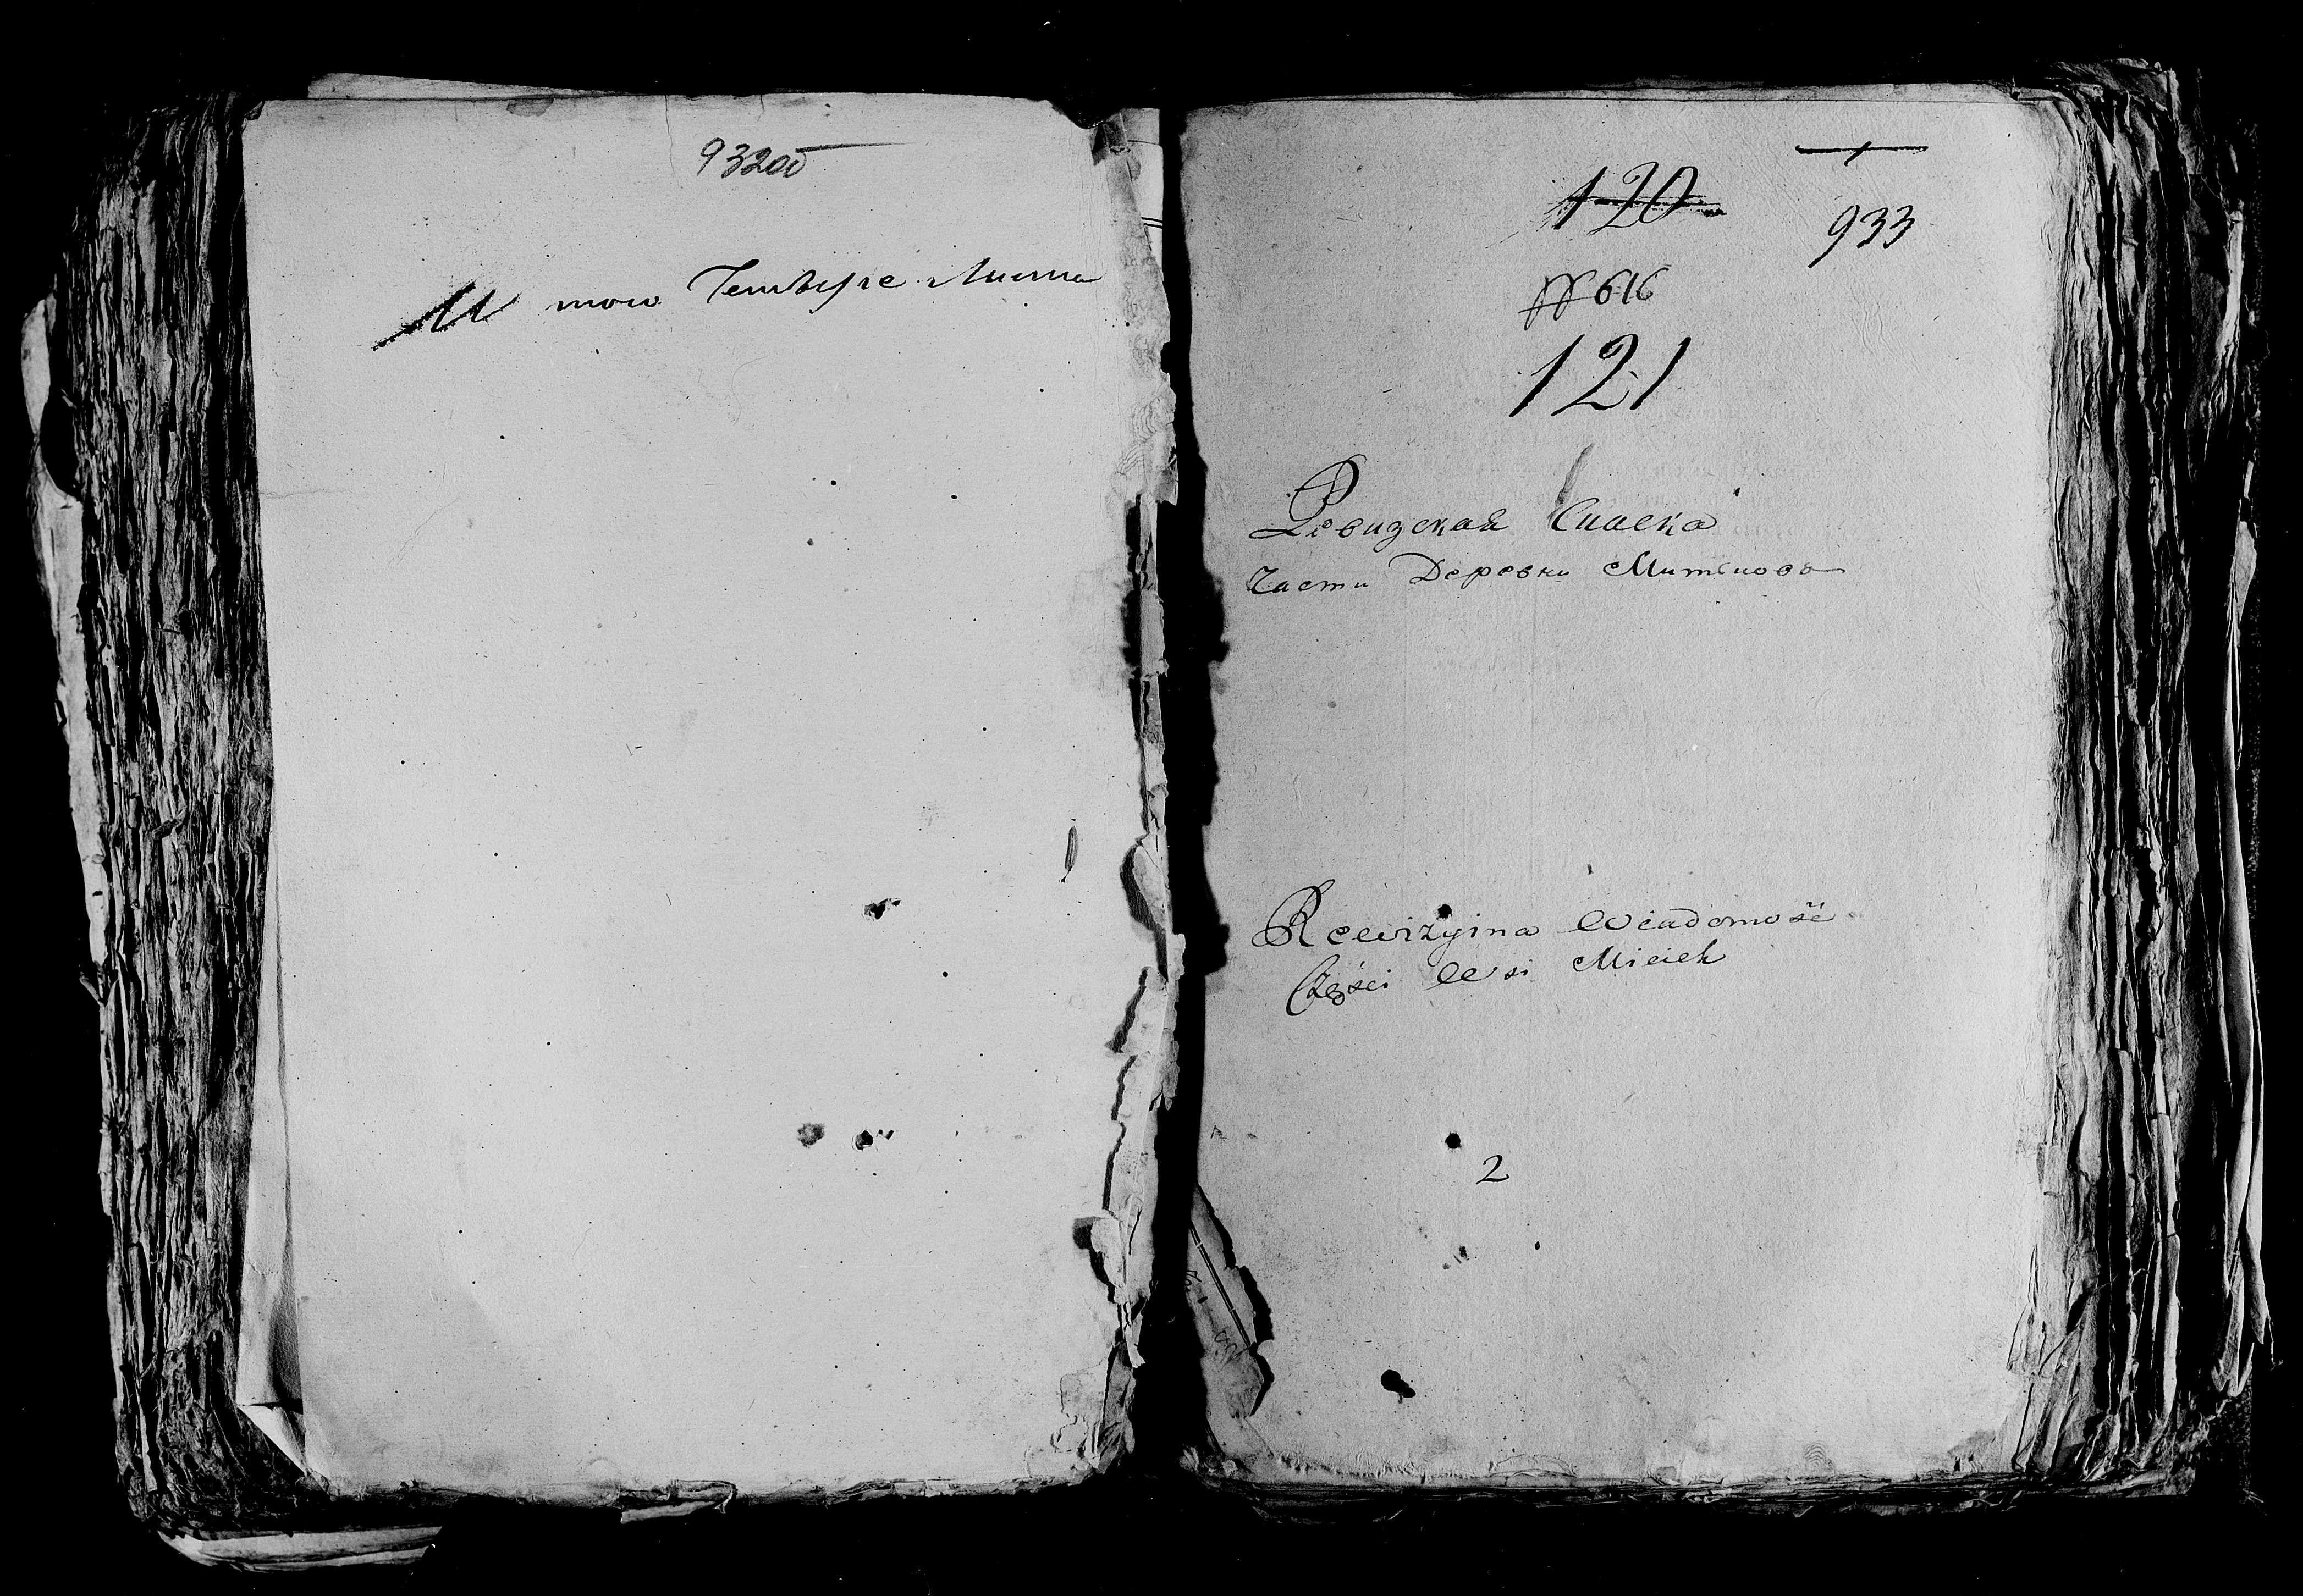 932об
И того Четыре Листа
120
933
№ 616
121
Ревизская Сказка
Части Деревни Митьковъ
Rewizyina Wiadomość
Części Wsi Miciek
2